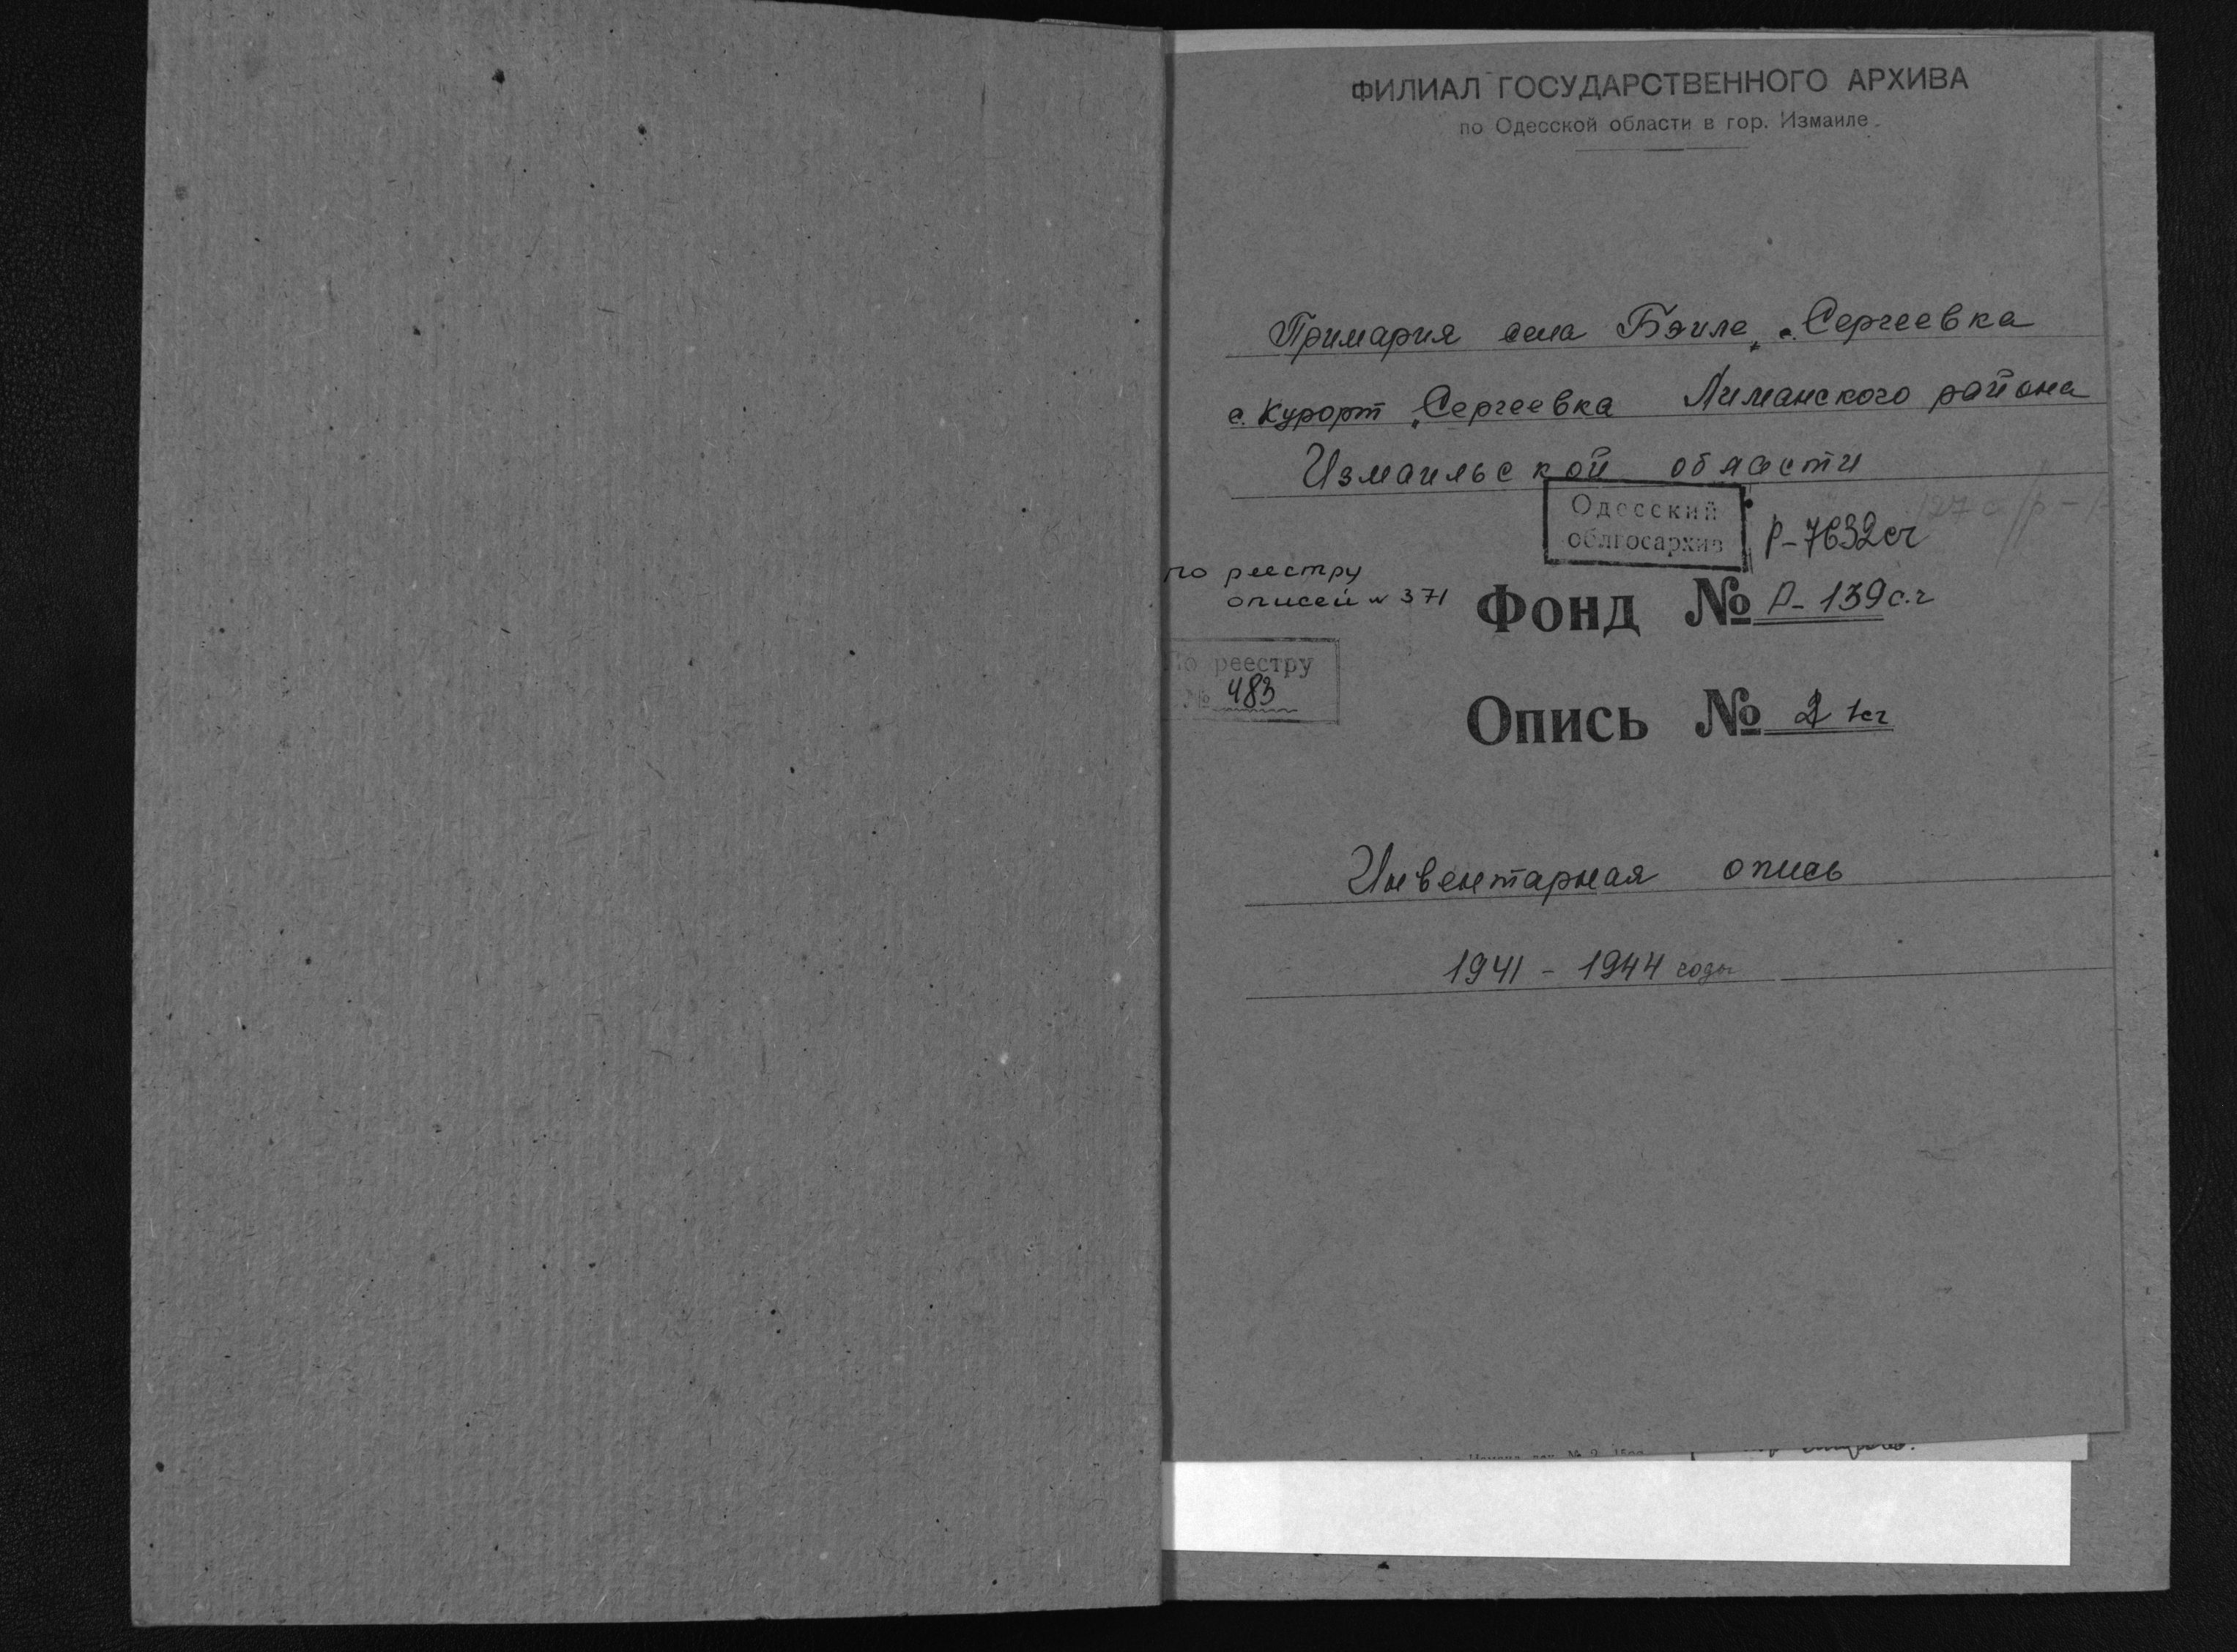 ФИЛИАЛ ГОСУДАРСТВЕННОГО АРХИВА
по Одесской области в гор. Измаиле
Примария села Бэиле „с. Сергеевка
с. Курорт „Сергеевка Лиманского района
Измаильской области
Одесский
облгосархив
Р-7632сч
по реестру
описей № 371
Фонд № Р-139с.ч
По реестру
№ 483
Опись № 2 1сч
Инвентарная опись
1941 - 1944 годы